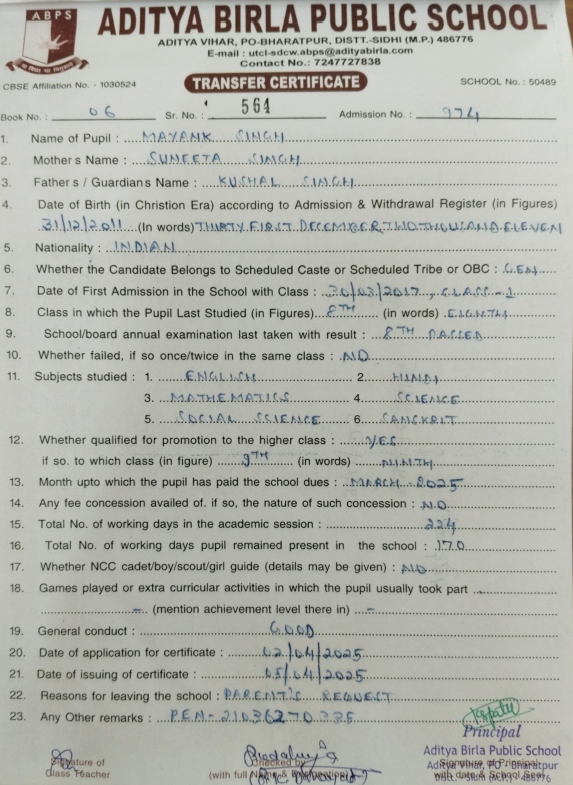 ABPS
ADITYA BIRLA PUBLIC SCHOOL
ADITYA VIHAR, PO-BHARATPUR, DISTT.-SIDHI (M.P.) 486776
E-mail : utcl-sdcw.abps@adityabirla.com
Contact No.: 7247727838
CBSE Affiliation No. - 1030524
TRANSFER CERTIFICATE
SCHOOL No. : 50489
Book No. : 06 Sr. No. : 564 Admission No. : 974
1. Name of Pupil : MAYANK SINGH
2. Mother's Name : SUNEETA SINGH
3. Father s / Guardian s Name : KUSHAL SINGH
4. Date of Birth (in Christion Era) according to Admission & Withdrawal Register (in Figures)
31/12/2011 (In words) THIRTY FIRST DECEMBER TWO THOUSAND ELEVEN
5. Nationality : INDIAN
6. Whether the Candidate Belongs to Scheduled Caste or Scheduled Tribe or OBC : GEN
7. Date of First Admission in the School with Class : 30/03/2017, CLASS-1
8. Class in which the Pupil Last Studied (in Figures) 8TH (in words) EIGHTH
9. School/board annual examination last taken with result : 8TH PASSED
10. Whether failed, if so once/twice in the same class : NO
11. Subjects studied : 1. ENGLISH 2. HINDI
3. MATHEMATICS 4. SCIENCE
5. SOCIAL SCIENCE 6. SANSKRIT
12. Whether qualified for promotion to the higher class : YES
if so. to which class (in figure) 9TH (in words) NINTH
13. Month upto which the pupil has paid the school dues : MARCH-2025
14. Any fee concession availed of. if so, the nature of such concession : NO
15. Total No. of working days in the academic session : 224
16. Total No. of working days pupil remained present in the school : 170
17. Whether NCC cadet/boy/scout/girl guide (details may be given) : NO
18. Games played or extra curricular activities in which the pupil usually took part
— (mention achievement level there in) —
19. General conduct : GOOD
20. Date of application for certificate : 02/04/2025
21. Date of issuing of certificate : 05/04/2025
22. Reasons for leaving the school : PARENT'S REQUEST
23. Any Other remarks : PEN-21036270335
Signature of
Class Teacher
Checked by
(with full Name &
Principal
Aditya Birla Public School
Aditya Vihar, PO - Bharatpur
Distt. - Sidhi (M.P.) - 486776
Signature of Principal
with date & School Seal